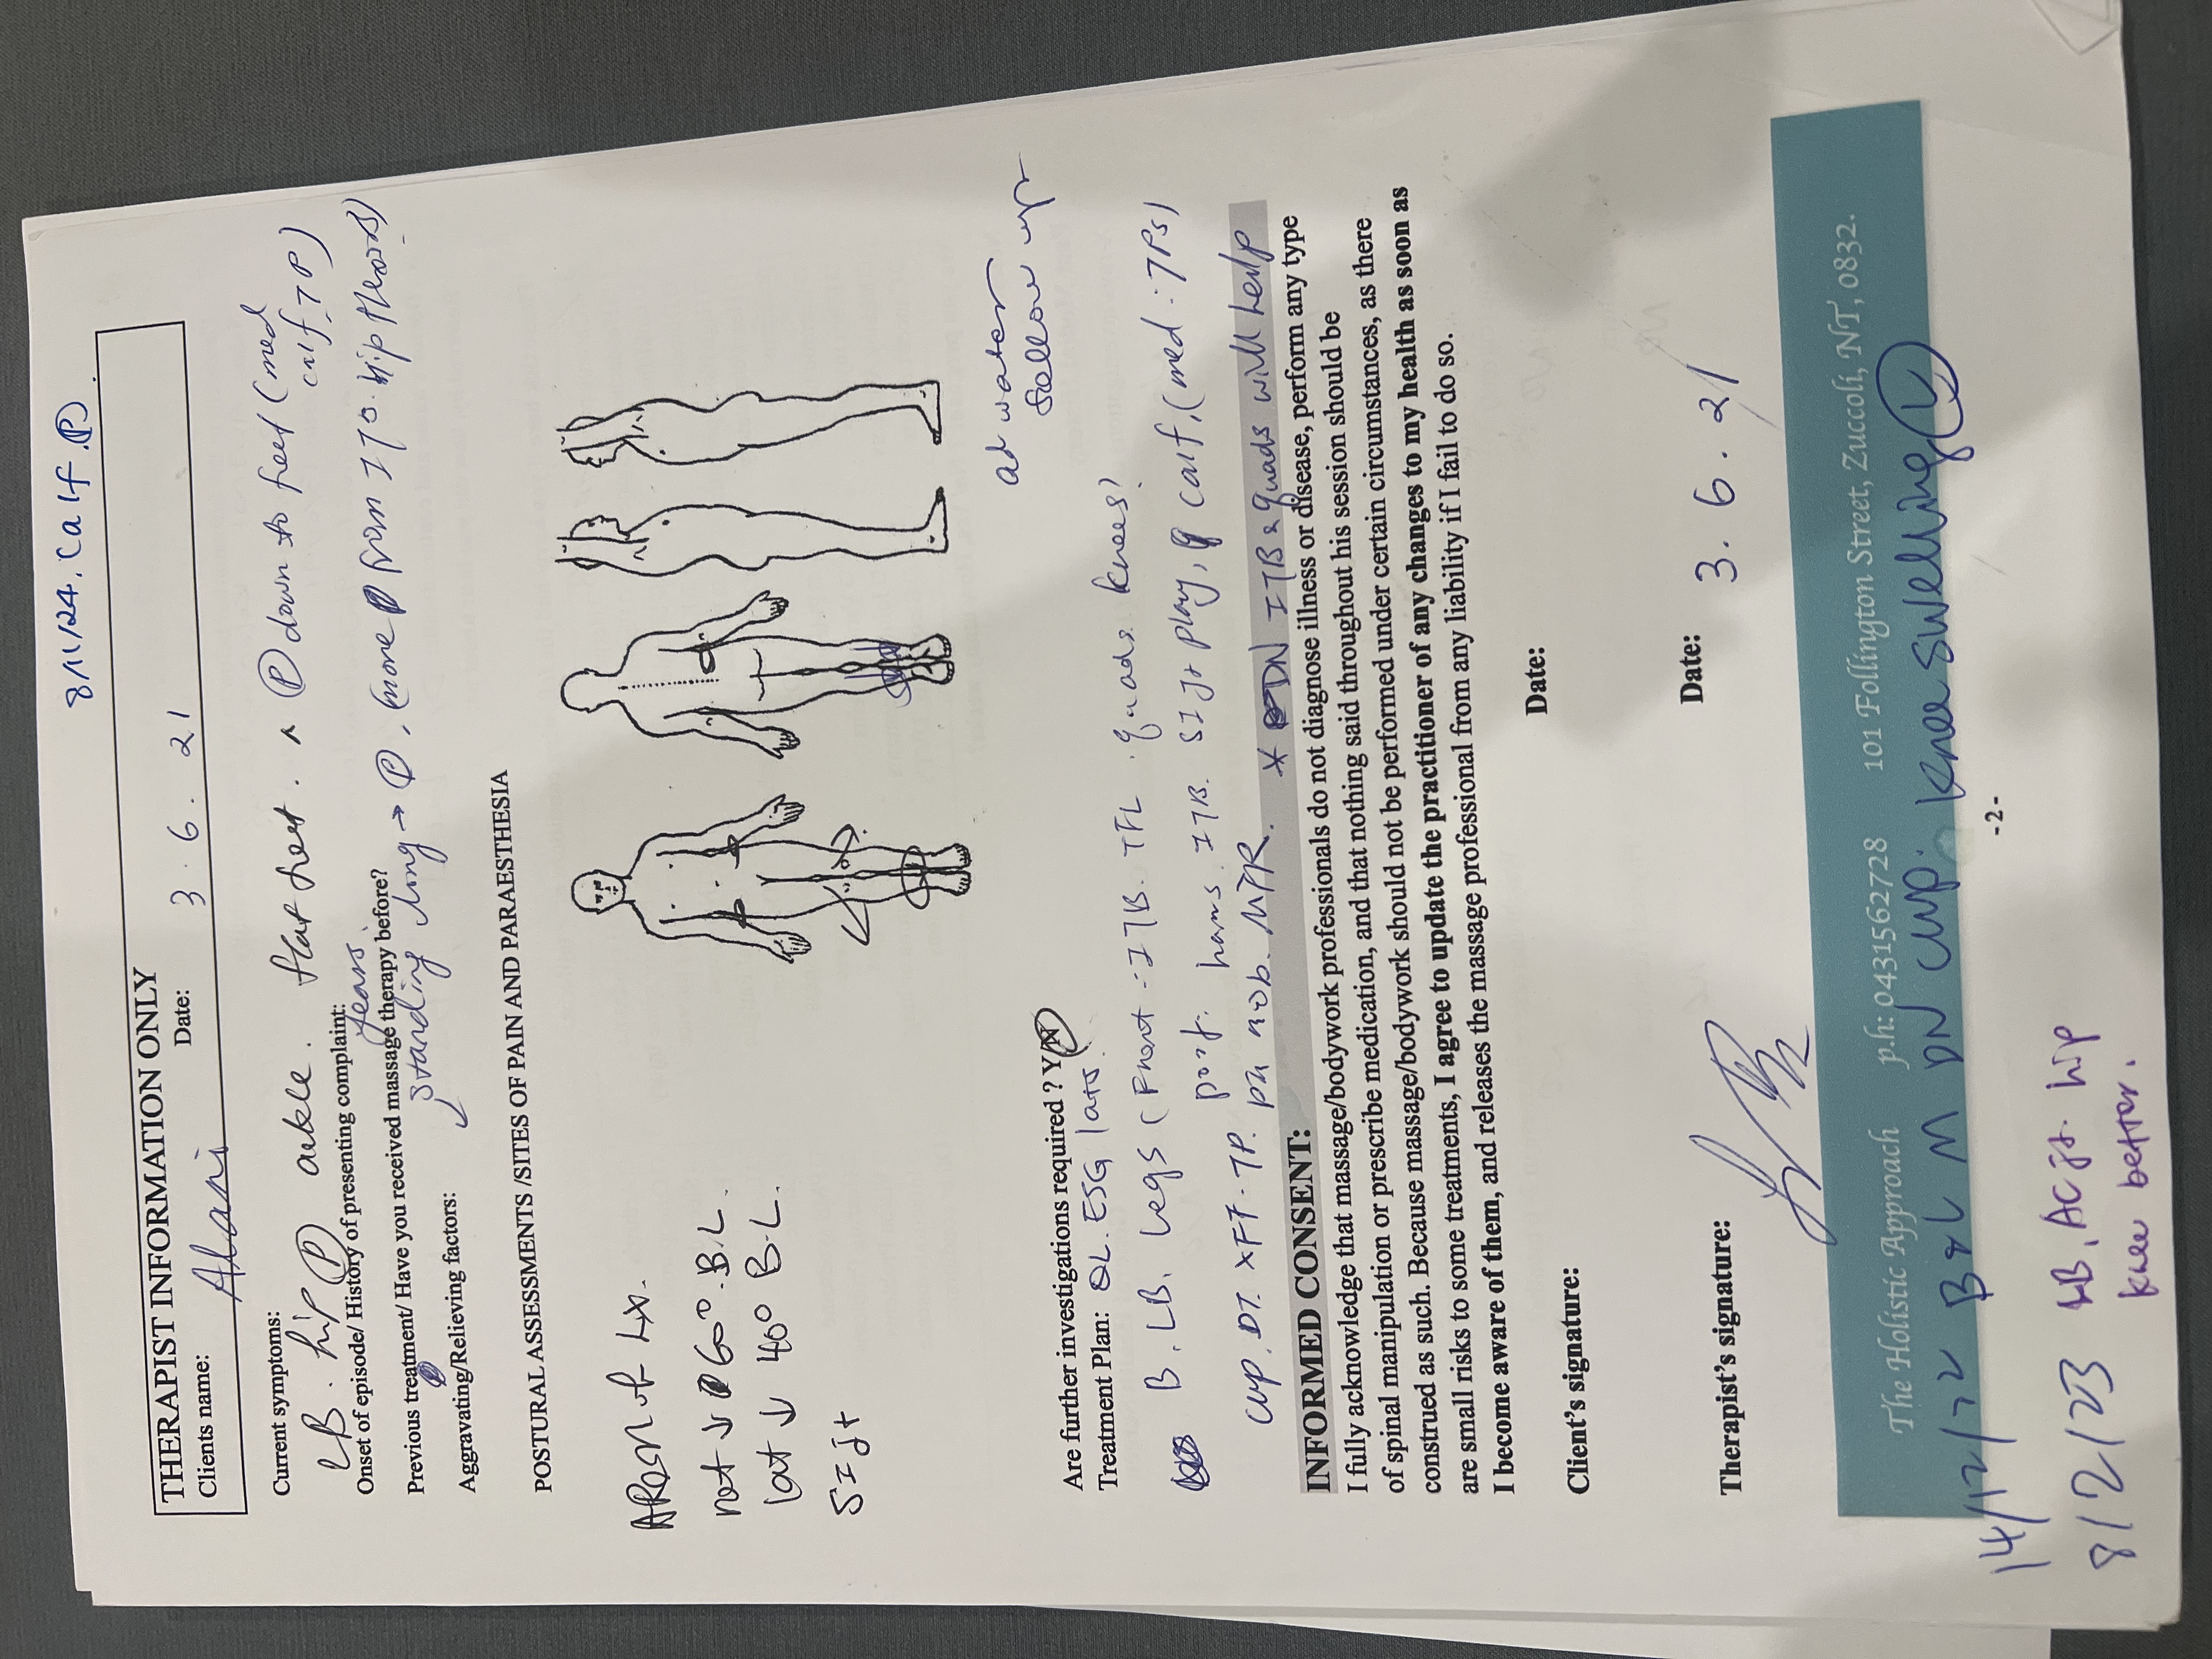 8/11/24. Calf. P.
THERAPIST INFORMATION ONLY
Clients name: Alani Date: 3.6.21
Current symptoms:
LB. hip P ankle. flat feet. ^ P down to feet (med calf. TP)
Onset of episode/ History of presenting complaint: years.
Previous treatment/ Have you received massage therapy before?
standing long → P. (more P from 170° hip
Aggravating/Relieving factors:
POSTURAL ASSESSMENTS /SITES OF PAIN AND PARAESTHESIA
AROM of Lx.
rot ↓ 60° B.L.
lat ↓ 40° B.L.
SI jt
ad water
follow up
Are further investigations required ? Y/N
Treatment Plan: QL. ESG lats.
B. LB. Legs (Front - ITB. TFL. quads. knees)
post. hams. ITB. SI jt play, calf, (med: TPs)
cup. DT. XFF. TP. mob. MFR. * DN ITB & quads will help
INFORMED CONSENT:
I fully acknowledge that massage/bodywork professionals do not diagnose illness or disease, perform any type
of spinal manipulation or prescribe medication, and that nothing said throughout his session should be
construed as such. Because massage/bodywork should not be performed under certain circumstances, as there
are small risks to some treatments, I agree to update the practitioner of any changes to my health as soon as
I become aware of them, and releases the massage professional from any liability if I fail to do so.
Client's signature: Date:
Therapist's signature: Date: 3.6.21
The Holistic Approach p.h: 0431562728 101 Follington Street, Zuccoli, NT, 0832.
14/12/22 B & L M DN cup. knee swelling L
-2-
8/2/23 LB, AC jt. hip
knee better.